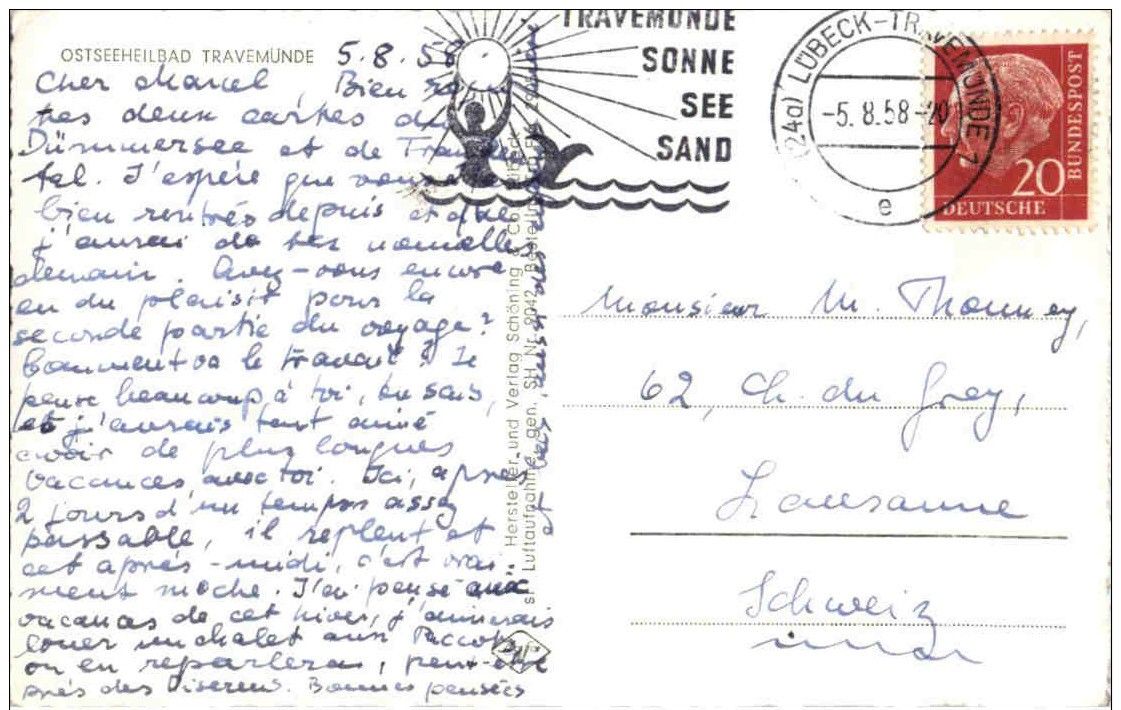 OSTSEEHEILBAD TRAVEMÜNDE
5.8.58
Cher Marcel, Bien
tes deux cartes de
Dümmersee et de
tal. J'espère que vous
bien rentrés depuis et que
j'aurai de tes nouvelles
demain. Avez-vous encore
eu du plaisir pour la
seconde partie du voyage?
Comment va le travail? Je
pense beaucoup à toi, tu sais,
et j'aurais tant aimé
avoir de plus longues
vacances avec toi. Ici, après
2 jours d'un temps assez
passable, il repleut et
cet après-midi, c'est vrai-
ment moche. J'ai pensé aux
vacances de cet hiver, j'aimerais
louer un chalet aux
on en reparlera, peut-être
près des Diserens. Bonnes pensées
et
TRAVEMÜNDE
SONNE
SEE
SAND
(24a) LÜBECK-TRAVEMÜNDE 1
-5.8.58-20
e
20
DEUTSCHE
BUNDESPOST
Hersteller und Verlag Schöning & Co., Lübeck
Luftaufnahme gen. SH Nr.
Monsieur M. Thonney,
62, Ch. du Grey,
Lausanne
Schweiz